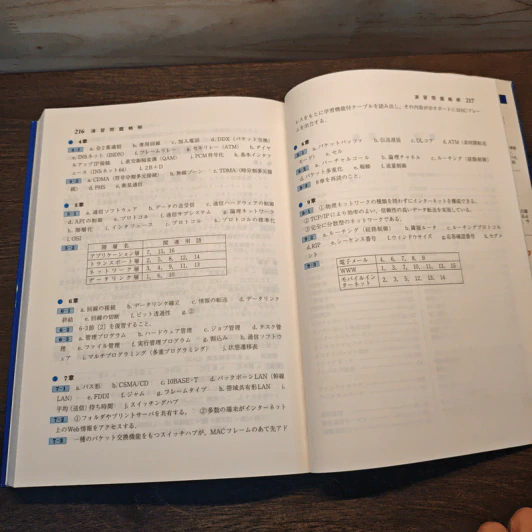 216 演習問題略解
● 4章
4-1 a. 自営通信 b. 専用回線 c. 加入電話 d. DDX（パケット交換）
e. ISDNネット（ISDN） f. フレームリレー g. セルリレー（ATM） h. ダイヤ
ルアップIP接続 i. 直交振幅変調（QAM） j. PCM符号化 k. 基本インタフ
ェース（INSネット64） l. 2B+D
4-2 a. CDMA（符号分割多元接続） b. 無線ゾーン c. TDMA（時分割多元接
続） d. PHS e. 衛星通信
● 5章
5-1 a. 通信ソフトウェア b. データの送受信 c. 通信ハードウェアの制御
d. APIの制御 e. プロトコル f. 通信サブシステム g. 論理ネットワーク
h. 階層化 i. インタフェース j. プロトコル k. プロトコルの標準化
l. OSI
5-2
階層名 関連用語
アプリケーション層 7, 15, 16
トランスポート層 2, 5, 8, 12, 14
ネットワーク層 3, 4, 9, 11, 13
データリンク層 1, 6, 10
● 6章
6-1 a. 回線の接続 b. データリンク確立 c. 情報の転送 d. データリンク
終結 e. 回線の切断 f. ビット透過性 g. ②
6-2 6-3節〔2〕を復習すること.
6-3 a. 管理プログラム b. ハードウェア管理 c. ジョブ管理 d. タスク管
理 e. ファイル管理 f. 実行管理プログラム g. 割込み h. 通信ソフトウ
ェア i. マルチプログラミング（多重プログラミング） j. 状態遷移表
● 7章
7-1 a. バス形 b. CSMA/CD c. 10BASE-T d. バックボーンLAN（幹線
LAN） e. FDDI f. ジャム g. フレームタイプ h. 帯域共有形LAN i.
平均（送信）待ち時間 j. スイッチングハブ
7-2 ①フォルダやプリントサーバを共有する. ②多数の端末がインターネット
上のWeb情報をアクセスする.
7-3 一種のパケット交換機能をもつスイッチハブが, MACフレームのあて先アド
演習問題略解 217
レスをもとに学習機能付テーブルを読み出し, それ
を出力する.
● 8章
8-1 a. パケットバッファ b. 伝送遅延 c. DLコア d. ATM（非同期転送
モード） e. セル
8-2 a. バーチャルコール b. 論理チャネル c. ルーチング（経路制御）
d. パケット多重化 e. 輻輳 f. 流量制御
8-3 8章を再読のこと.
● 9章
9-1 ①物理ネットワークの種類を問わずにインターネットを構成できる.
②TCP/IPにより効率のよい, 信頼性の高いデータ転送を実現している.
③完全に分散形のネットワークである.
9-2 a. ルーチング（経路制御） b. 隣接ルータ c. ルーチングプロトコル
d. IGP e. シーケンス番号 f. ウィンドウサイズ g. 応答確認番号 h. セグメ
ント
9-3
電子メール 4, 6, 7, 8, 9
WWW 1, 3, 7, 10, 11, 12, 15
モバイルインターネット 2, 3, 5, 12, 13, 14